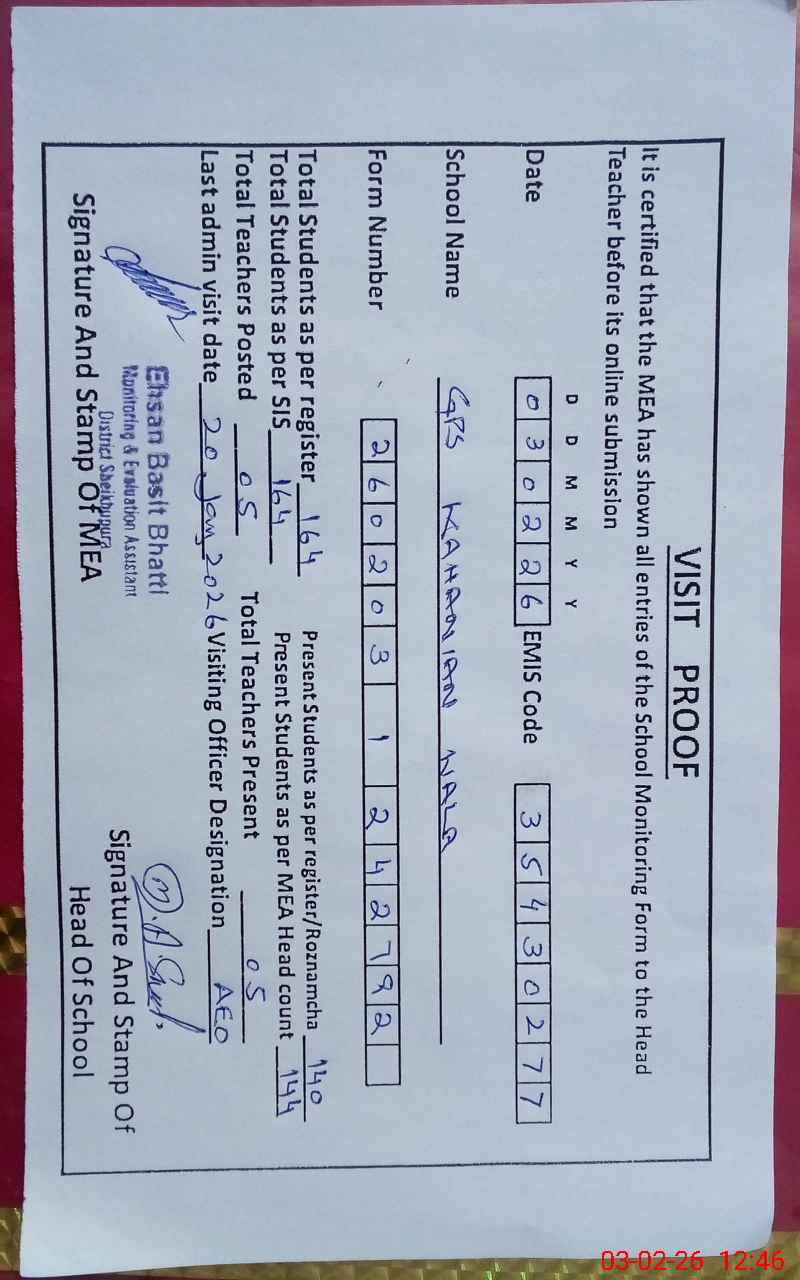 VISIT PROOF
It is certified that the MEA has shown all entries of the School Monitoring Form to the Head
Teacher before its online submission
D D M M Y Y
Date 0 3 0 2 2 6 EMIS Code 3 5 4 3 0 2 7 7
School Name GPS KAHANIAN WALA
Form Number 2 6 0 2 0 3 1 2 4 2 7 9 2
Total Students as per register 164 Present Students as per register/Roznamcha 140
Total Students as per SIS 164 Present Students as per MEA Head count 144
Total Teachers Posted 05 Total Teachers Present 05
Last admin visit date 20 Jan, 2026 Visiting Officer Designation AEO
Ehsan Basit Bhatti
Monitoring & Evaluation Assistant
District Sheikhupura
Signature And Stamp Of MEA
Signature And Stamp Of
Head Of School
03-02-26 12:46